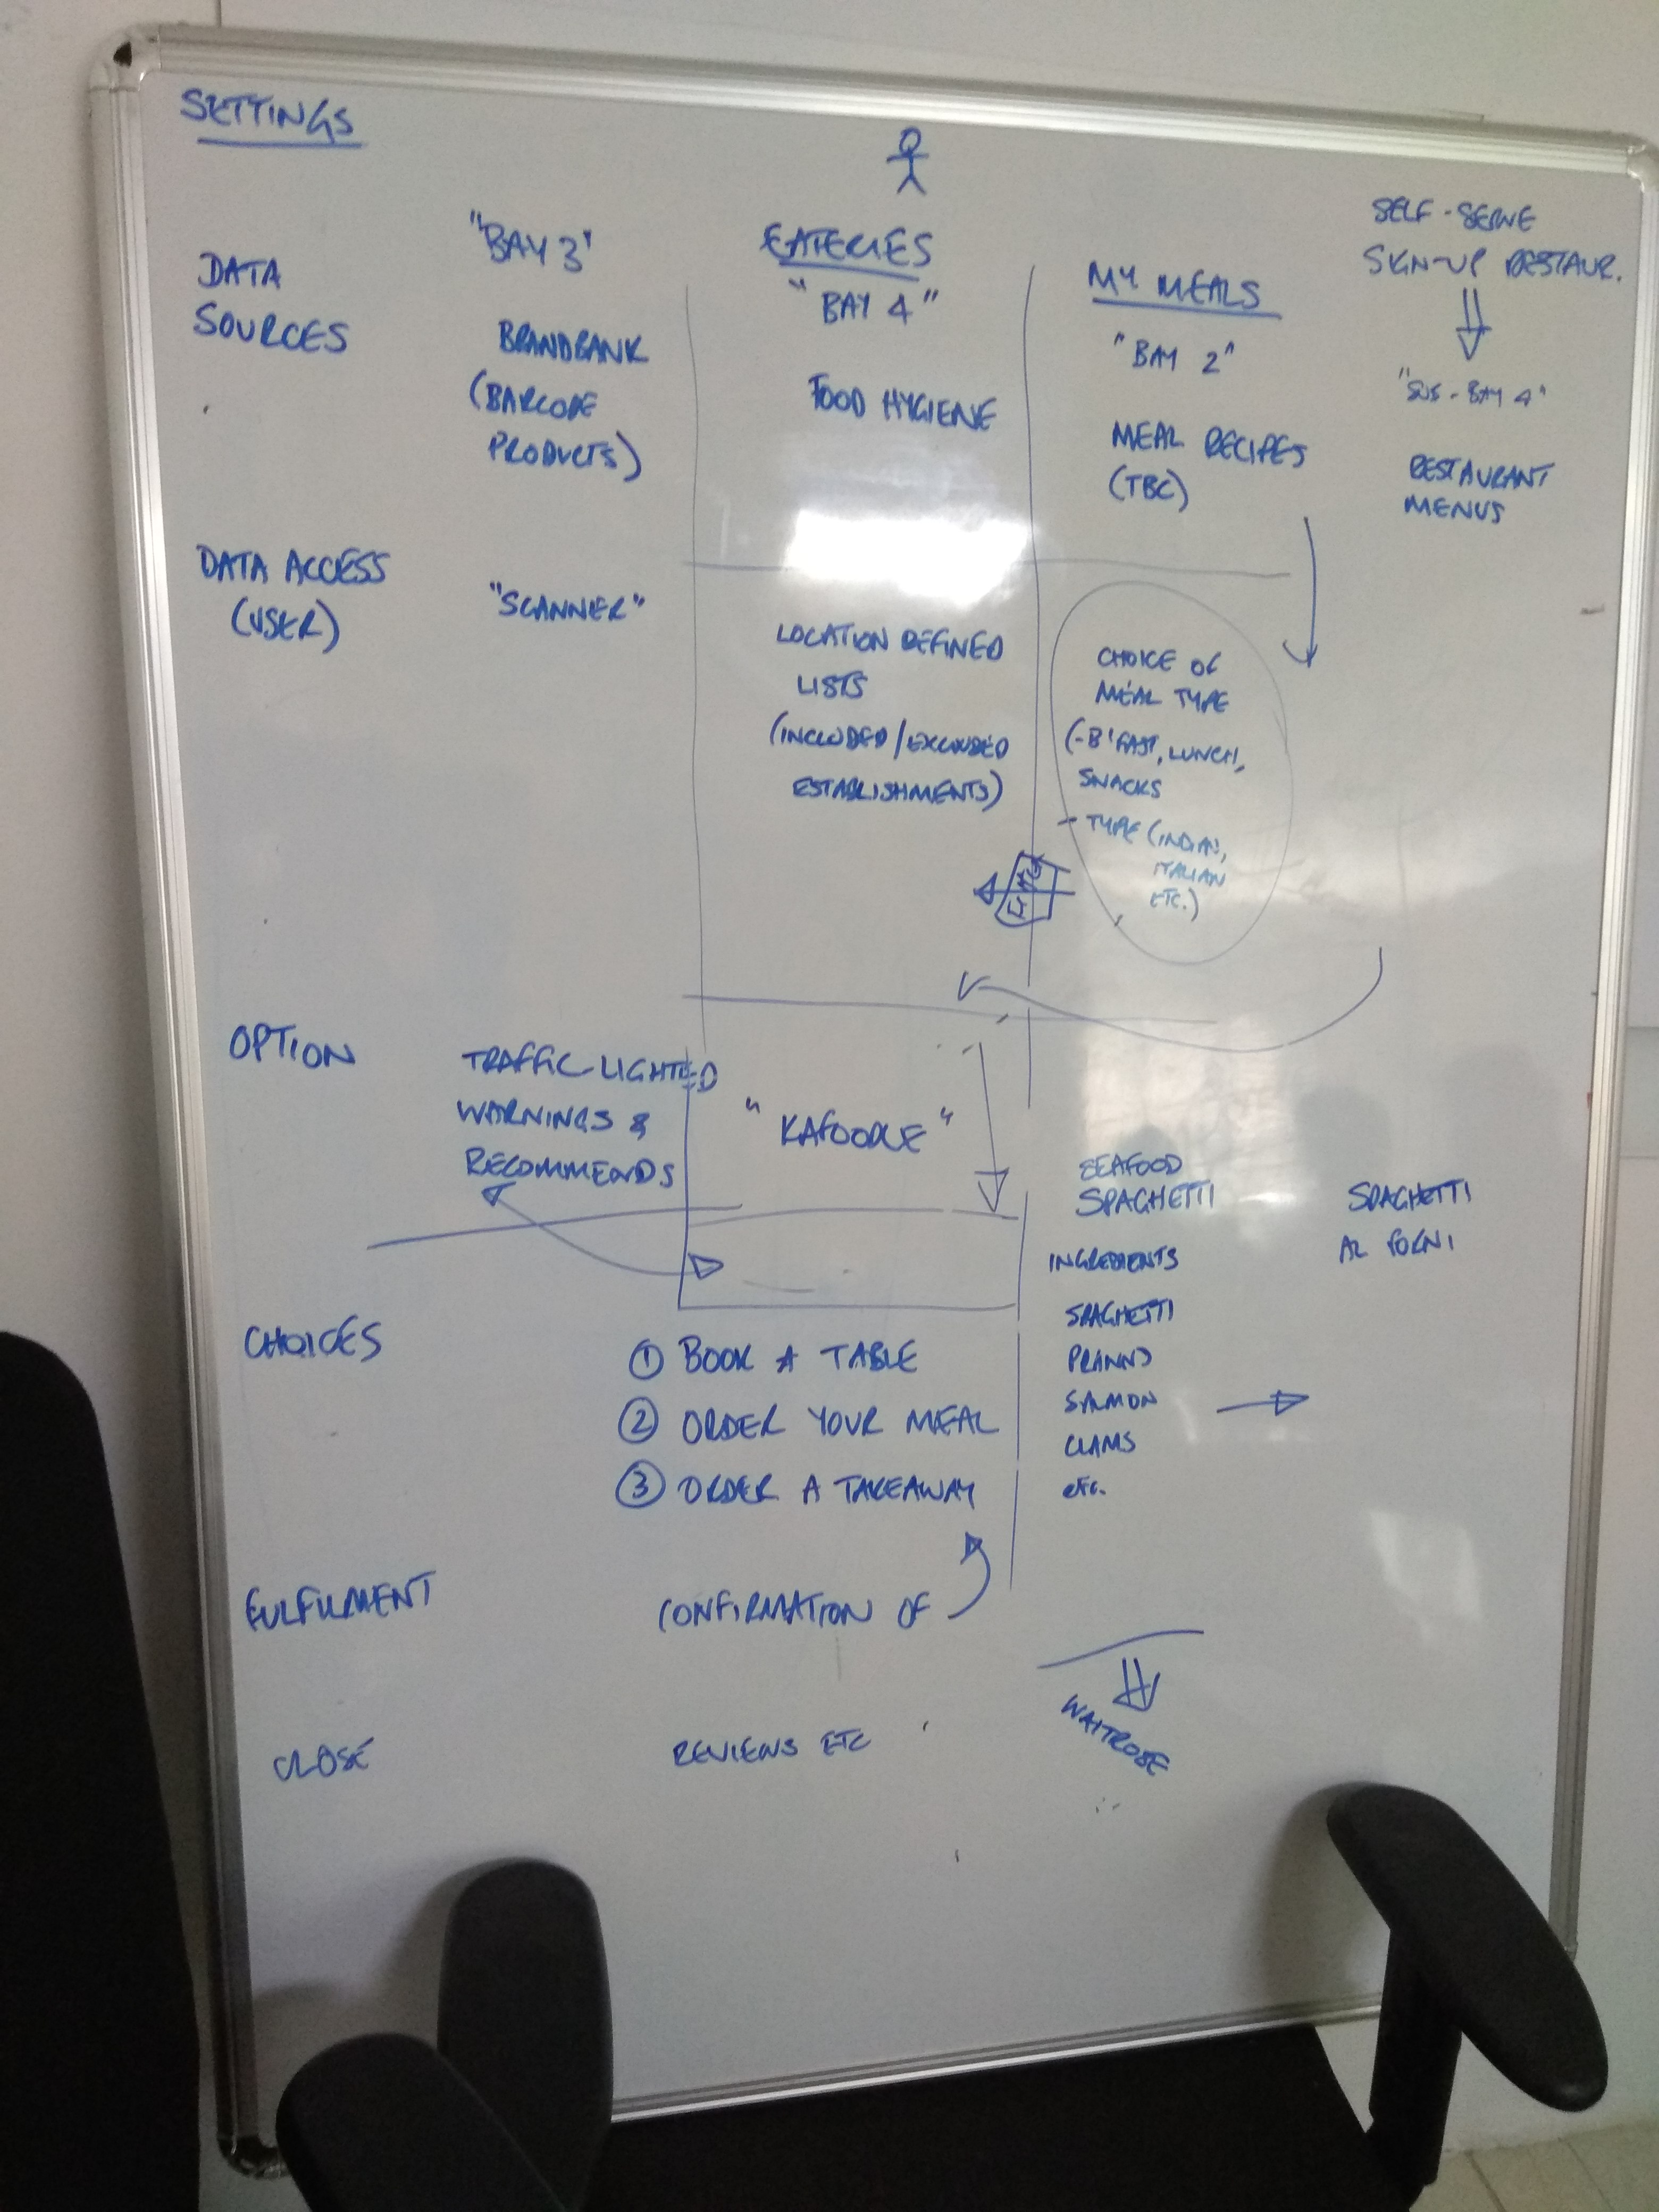 SETTINGS
DATA
SOURCES
"BAY 3"
BRANDBANK
(BARCODE
PRODUCTS)
EATERIES
"BAY 4"
FOOD HYGIENE
MY MEALS
"BAY 2"
MEAL RECIPES
(TBC)
SELF-SERVE
SIGN-UP RESTAUR.
"SUB-BAY 4"
RESTAURANT
MENUS
DATA ACCESS
(USER)
"SCANNER"
LOCATION DEFINED
LISTS
(INCLUDED/EXCLUDED
ESTABLISHMENTS)
CHOICE OF
MEAL TYPE
(-B'FAST, LUNCH,
SNACKS
- TYPE (INDIAN,
ITALIAN
ETC.)
OPTION
TRAFFIC-LIGHTED
WARNINGS &
RECOMMENDS
"KAFOODLE"
SEAFOOD
SPAGHETTI
INGREDIENTS
SPAGHETTI
PRAWNS
SALMON
CLAMS
etc.
SPAGHETTI
AL FORNI
CHOICES
① BOOK A TABLE
② ORDER YOUR MEAL
③ ORDER A TAKEAWAY
FULFILMENT
CONFIRMATION OF
WAITROSE
CLOSE
REVIEWS ETC